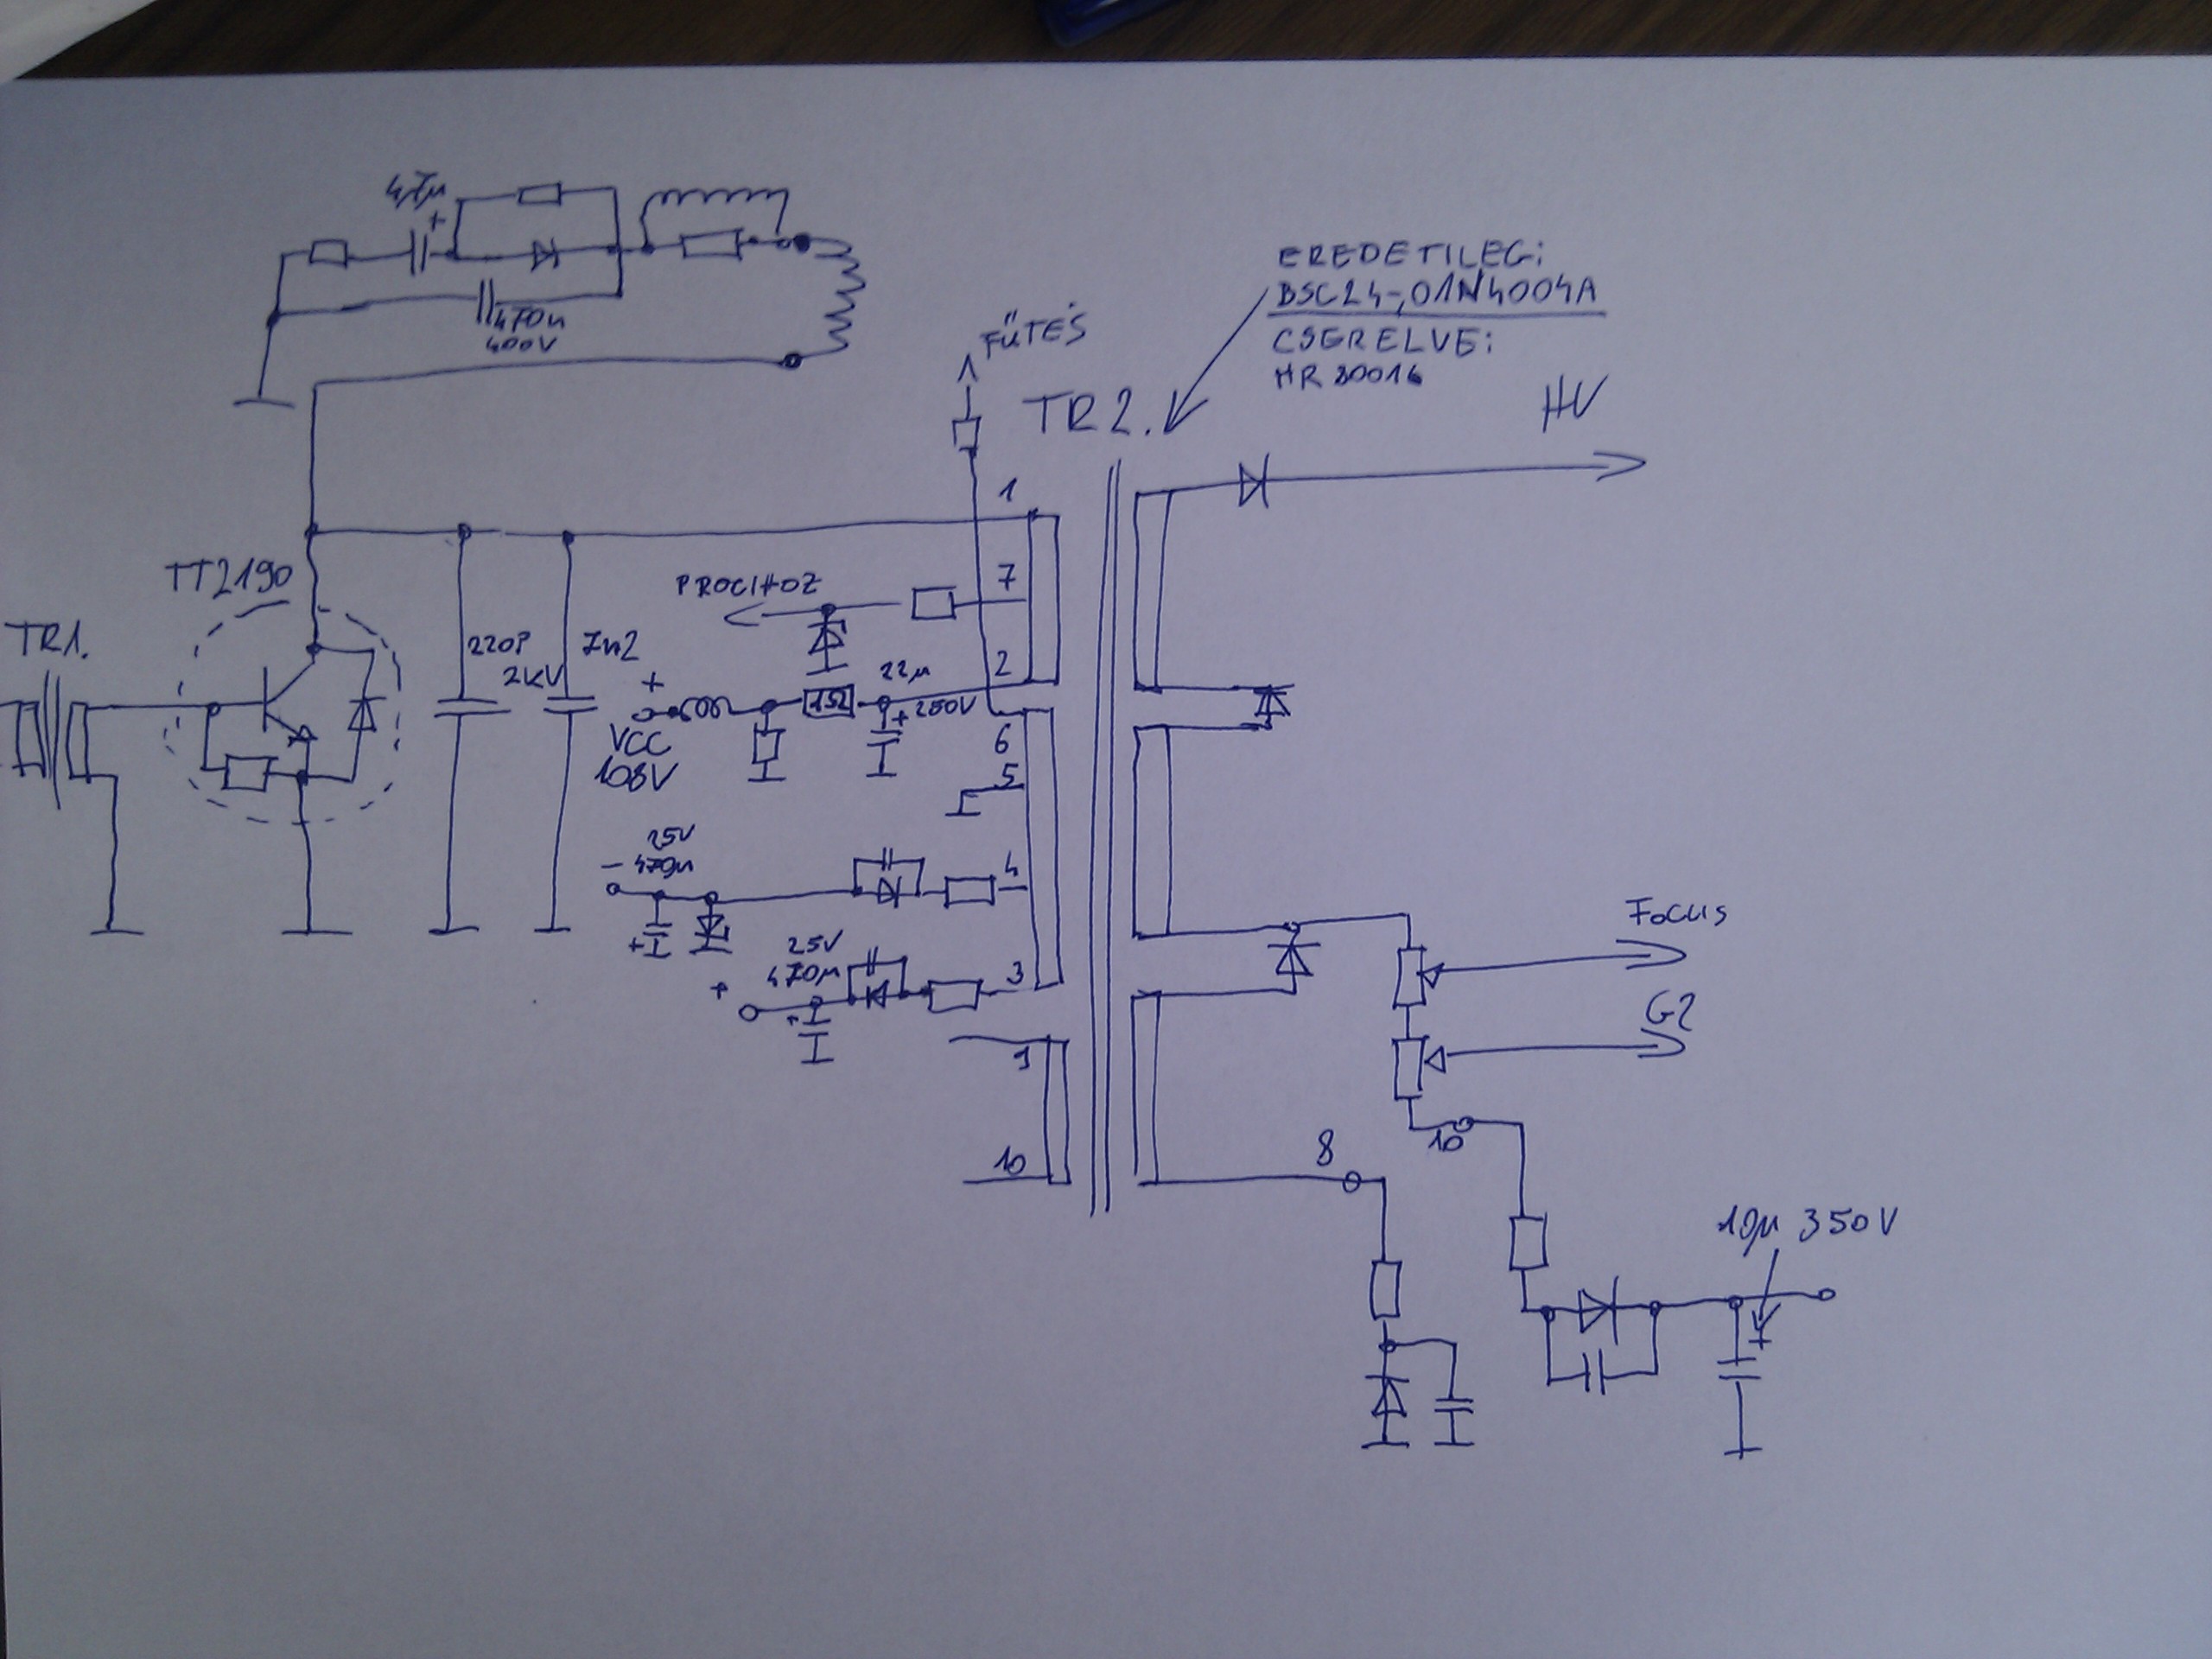 4,7µ
+
470n
400V
EREDETILEG:
BSC24-01N4004A
CSERELVE:
HR80016
FŰTÉS
TR2.
HV
1
TT2190
7
PROCIHOZ
TR1.
220P
2KV
7n2
2
22µ
+
+ 250V
VCC
108V
6
5
25V
- 470µ
4
+
25V
470µ
3
+
+
Focus
G2
9
10
10
8
10µ 350V
+